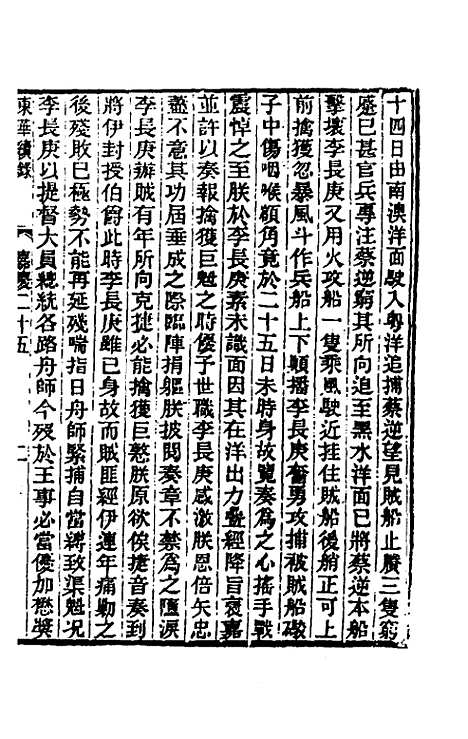 十四日由南澳洋面駛入粵洋追捕蔡逆望見賊船止賸三隻窮
蹙已甚官兵專注蔡逆窮其所向追至黑水洋面已將蔡逆本船
擊壞李長庚又用火攻船一隻乘風駛近挂住賊船後艄正可上
前擒獲忽暴風斗作兵船上下顛播李長庚奮勇攻捕被賊船礮
子中傷咽喉額角竟於二十五日未時身故覽奏為之心搖手戰
震悼之至朕於李長庚素未識面因其在洋出力疊經降旨褒嘉
並許以奏報擒獲巨魁之時優予世職李長庚感激朕恩倍矢忠
藎不意其功屆垂成之際臨陣捐軀朕披閱奏章不禁為之墮淚
李長庚辦賊有年所向克捷必能擒獲巨憝朕原欲俟捷音奏到
將伊封授伯爵此時李長庚雖已身故而賊匪經伊連年痛勦之
後殘敗已極勢不能再延殘喘指日舟師緊捕自當縛致渠魁況
李長庚以提督大員總統各路舟師今歿於王事必當優加懋獎
東華續錄 嘉慶二十五 二